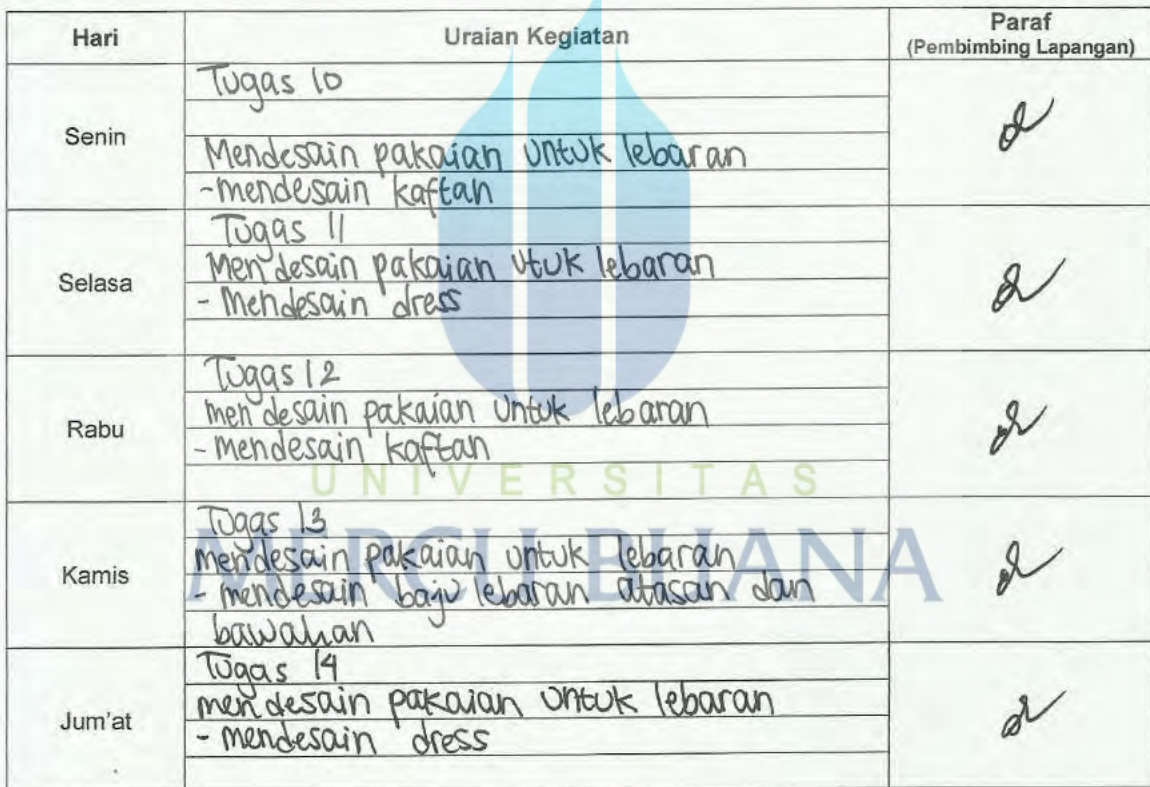 Hari Uraian Kegiatan Paraf
(Pembimbing Lapangan)
Senin
Tugas 10
Mendesain pakaian untuk lebaran
- mendesain kaftan
Selasa
Tugas 11
Mendesain pakaian utuk lebaran
- Mendesain dress
Rabu
Tugas 12
mendesain pakaian untuk lebaran
- mendesain kaftan
UNIVERSITAS
MERCU BUANA
Kamis
Tugas 13
mendesain pakaian untuk lebaran
- mendesain baju lebaran atasan dan
bawahan
Jum'at
Tugas 14
mendesain pakaian untuk lebaran
- mendesain dress